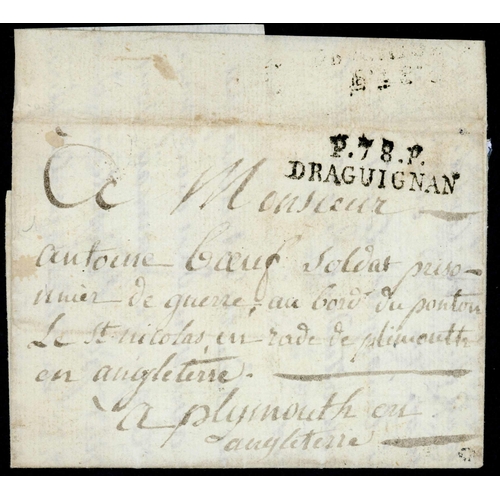 P.78.P.
DRAGUIGNAN
A Monsieur
antoine bœuf soldat priso-
nnier de guerre, au bord du ponton
Le st nicolas, en rade de plimouth
en angleterre.
a plymouth en
angleterre